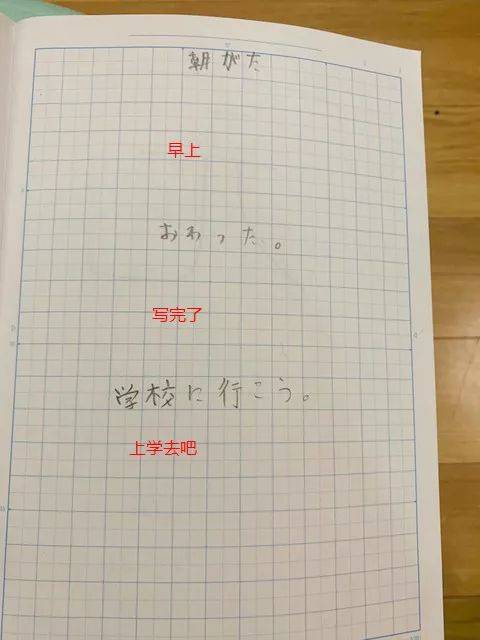 朝がた
早上
おわった。
写完了
学校に行こう。
上学去吧